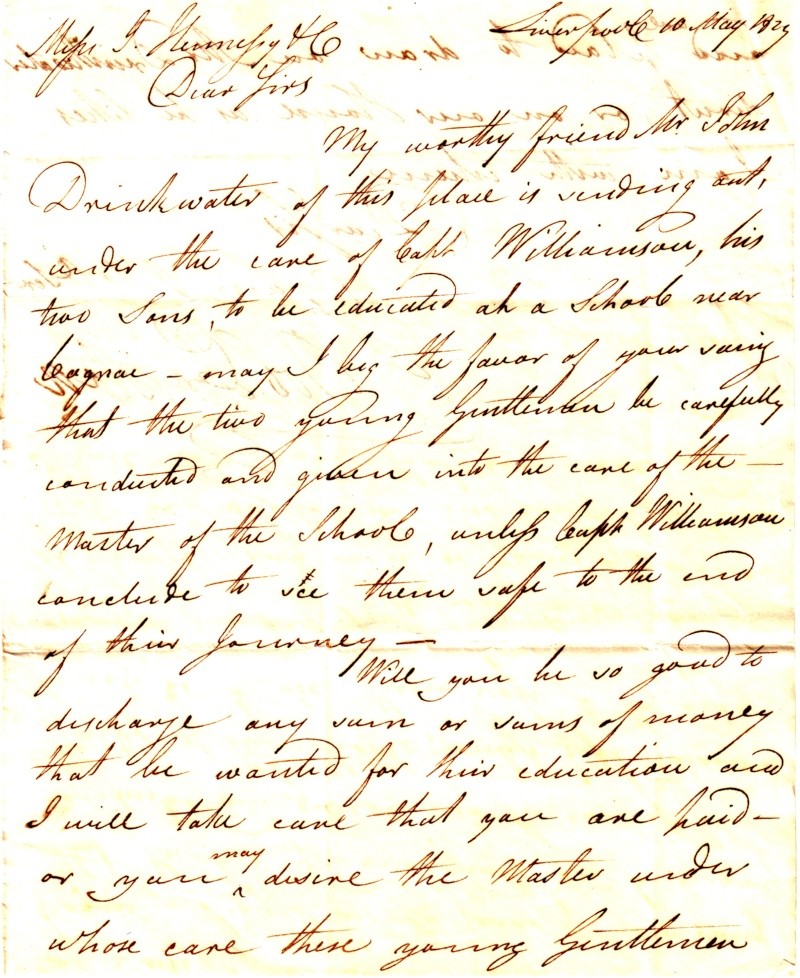 Liverpool 10 May 1829
Messrs J. Hennessy & Co
Dear Sirs
My worthy friend Mr. John
Drinkwater of this place is sending out,
under the care of Capt Williamson, his
two Sons, to be educated at a School near
Cognac – may I beg the favor of your seeing
that the two young Gentlemen be carefully
conducted and given into the care of the –
Master of the School, unless Capt Williamson
conclude to see them safe to the end
of their Journey –
Will you be so good to
discharge any sum or sums of money
that be wanted for their education and
I will take care that you are paid –
or you may desire the Master under
whose care these young Gentlemen